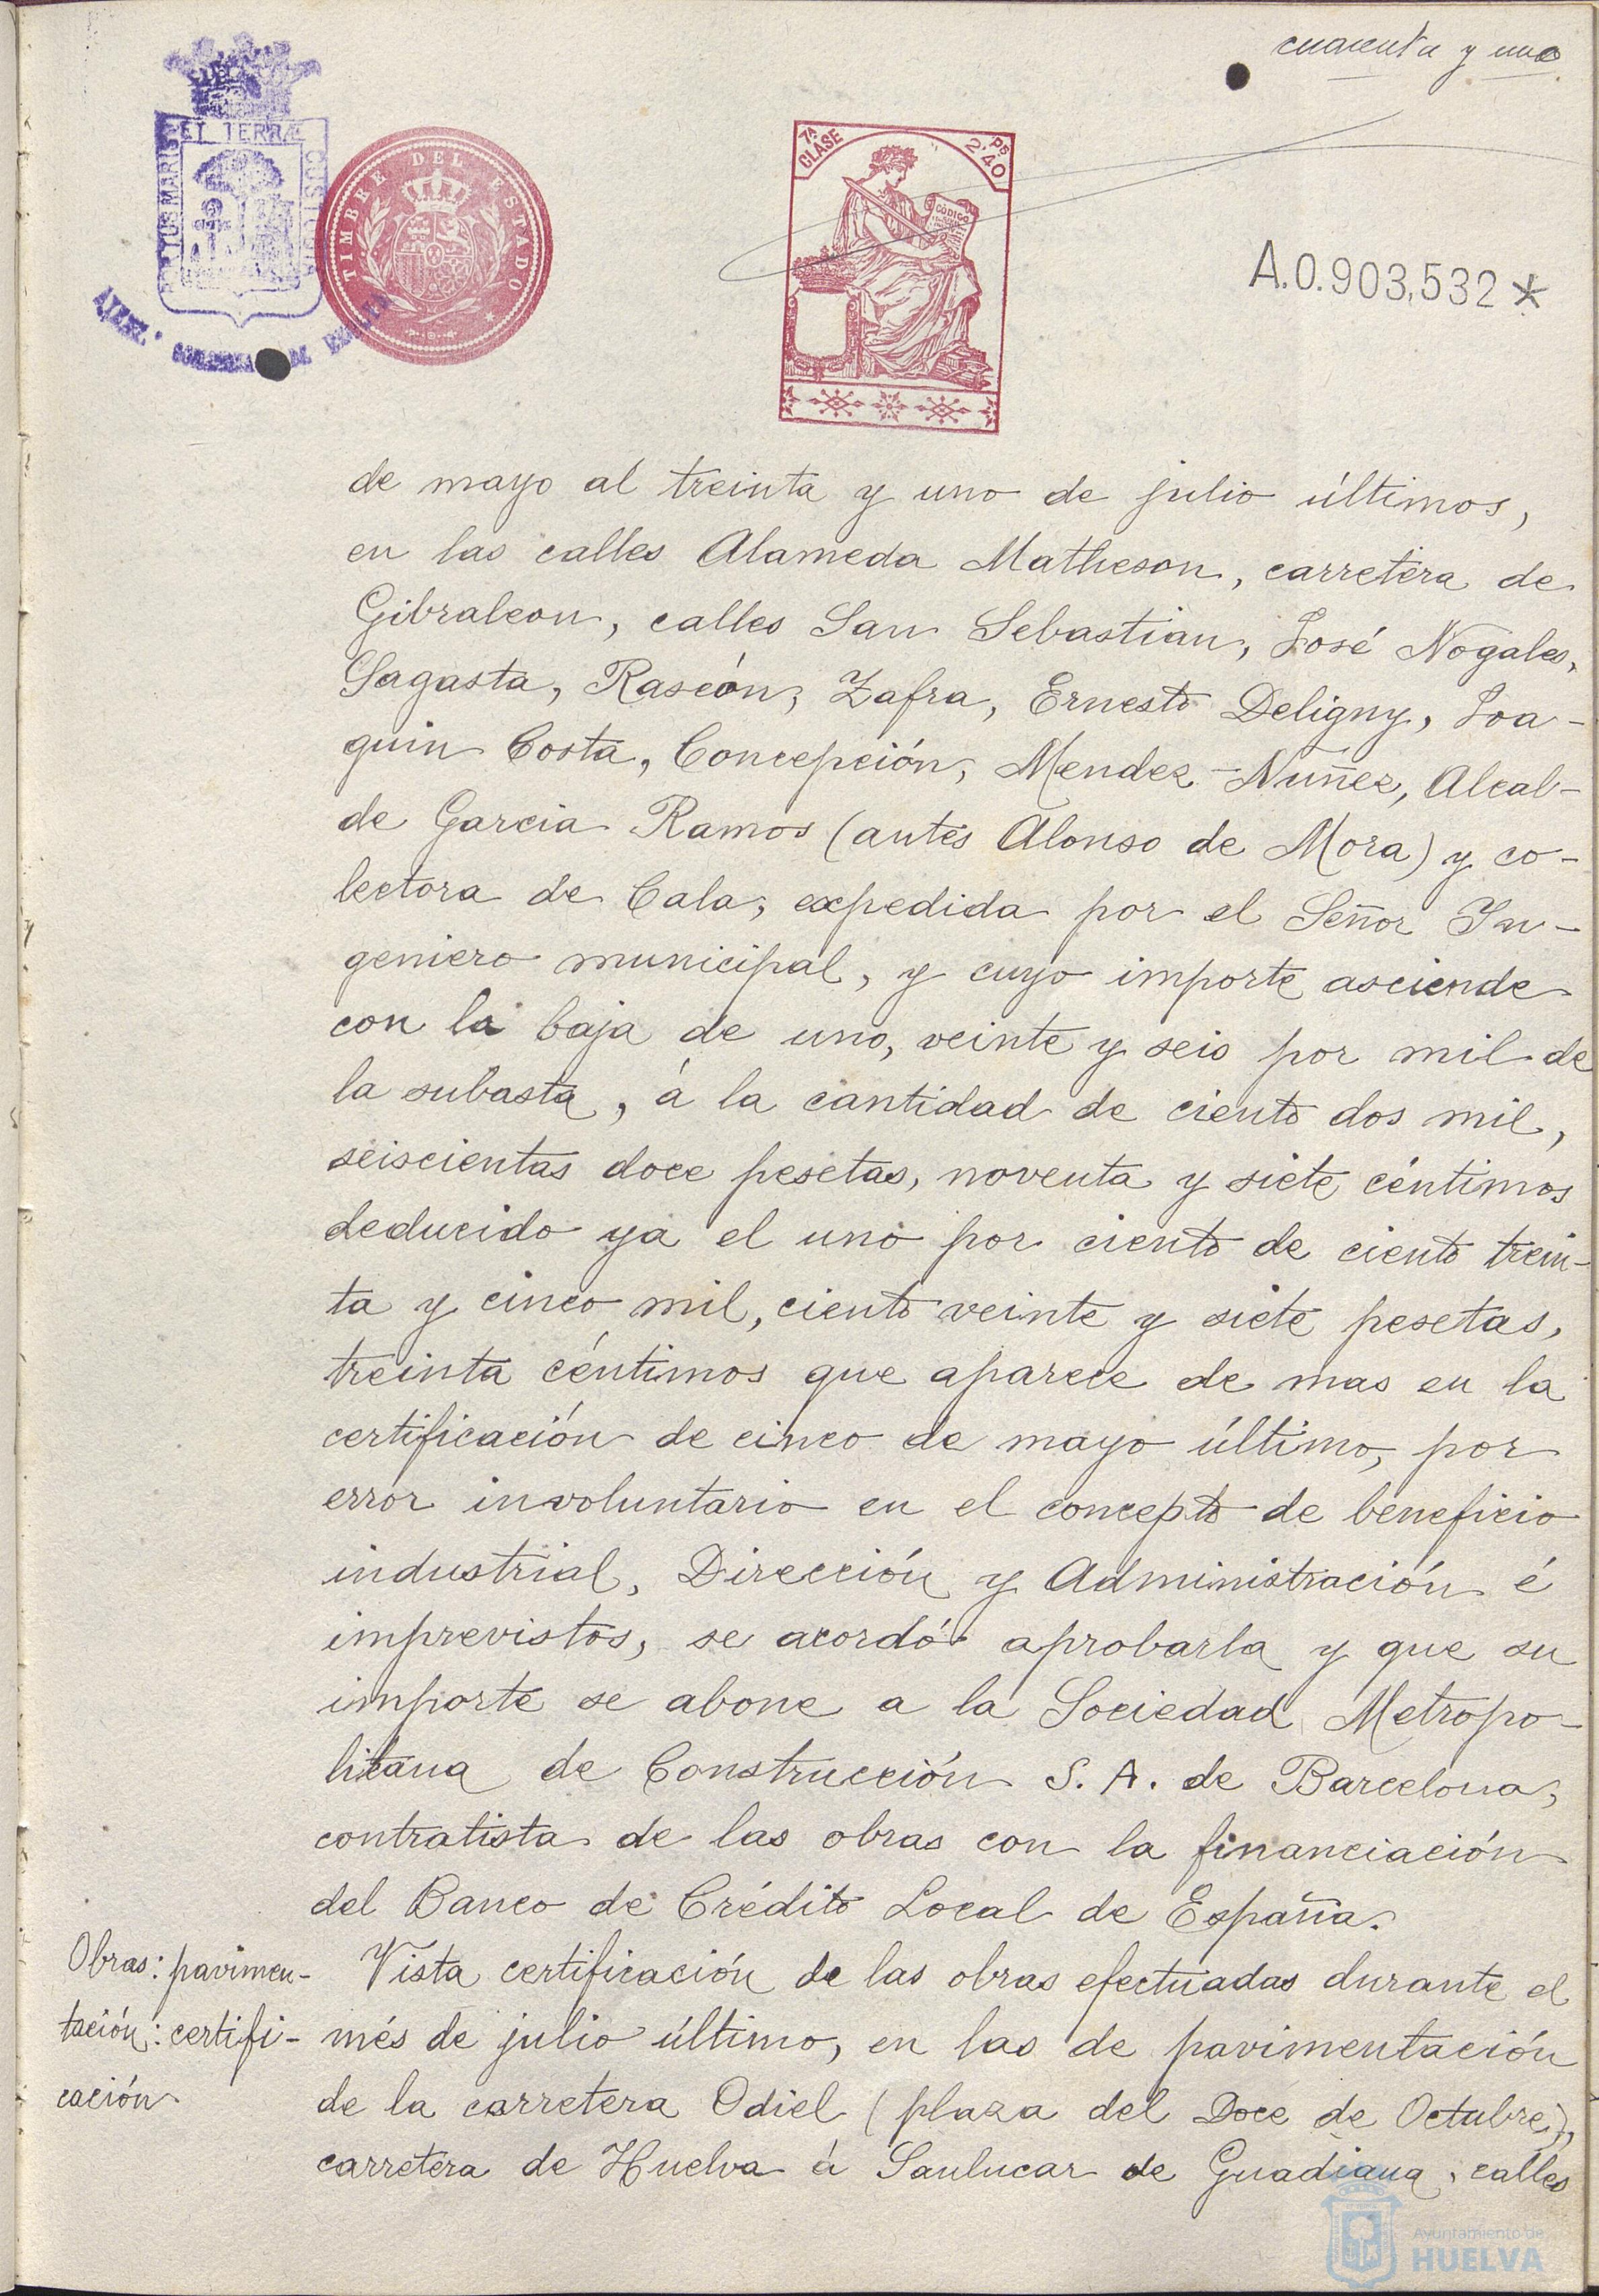 cuarenta y uno
ET TERRÆ
PORTUS MARIS
CUSTODIA
TIMBRE DEL ESTADO
7ª CLASE
2'40 Ps
CÓDIGO
A.0.903,532 *
de mayo al treinta y uno de julio últimos,
en las calles Alameda Matheson, carretera de
Gibraleon, calles San Sebastian, José Nogales,
Sagasta, Rascón, Zafra, Ernesto Deligny, Joa-
quin Costa, Concepción, Mendez-Nuñez, Alcal-
de Garcia Ramos (antes Alonso de Mora) y co-
lectora de Cala, expedida por el Señor In-
geniero municipal, y cuyo importe asciende
con la baja de uno, veinte y seis por mil de
la subasta, á la cantidad de ciento dos mil,
seiscientas doce pesetas, noventa y siete céntimos
deducido ya el uno por ciento de ciento trein-
ta y cinco mil, ciento veinte y siete pesetas,
treinta céntimos que aparece de mas en la
certificación de cinco de mayo último, por
error involuntario en el concepto de beneficio
industrial, Dirección y Administración é
imprevistos, se acordó aprobarla y que su
importe se abone a la Sociedad Metropo-
litana de Construcción S. A. de Barcelona,
contratista de las obras con la financiación
del Banco de Crédito Local de España.
Obras: pavimen-
tación: certifi-
cación
Vista certificación de las obras efectuadas durante el
més de julio último, en las de pavimentación
de la carretera Odiel (plaza del Doce de Octubre),
carretera de Huelva á Sanlucar de Guadiana, calles
Ayuntamiento de
HUELVA